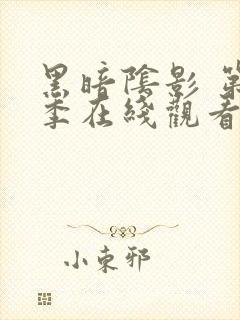 黑暗陰影 第
季在綫觀看
小東邪